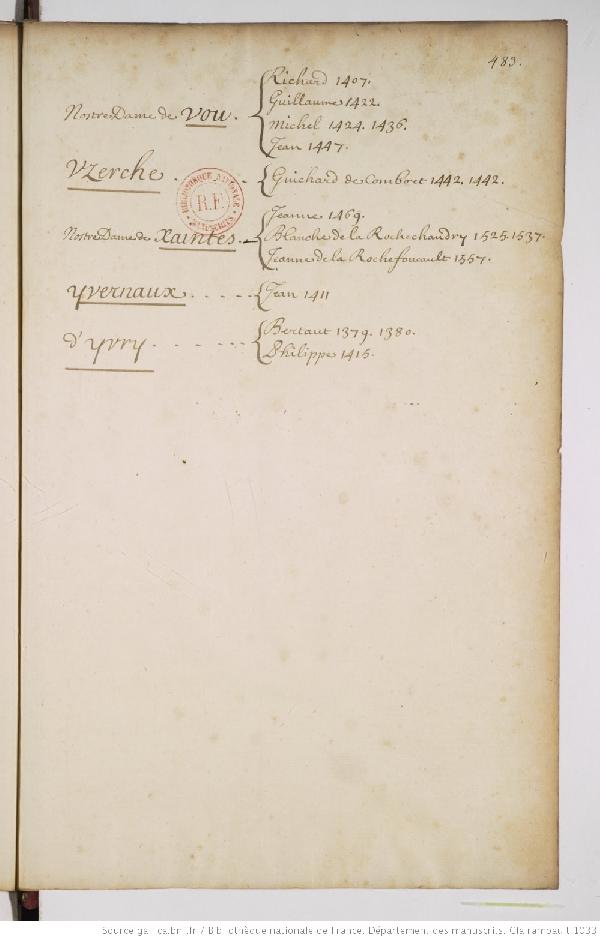 483.
Nostre Dame de Vou. { Richard 1407.
Guillaume 1422.
Michel 1424. 1436.
Jean 1447.
Vzerche . . . { Guichard de Combort 1442. 1442.
BIBLIOTHEQUE NATIONALE
R.F.
MANUSCRITS
Nostre Dame de Xaintes. { Jeanne 1469.
Blanche de la Rochechandry 1525. 1537.
Jeanne de la Rochefoucault 1557.
yvernaux . . . . . { Jean 1411
d'yvry . . . . . . . { Bertaut 1379. 1380.
Philippe 1415.
Source gallica.bnf.fr / Bibliothèque nationale de France. Département des manuscrits. Clairambault 1033